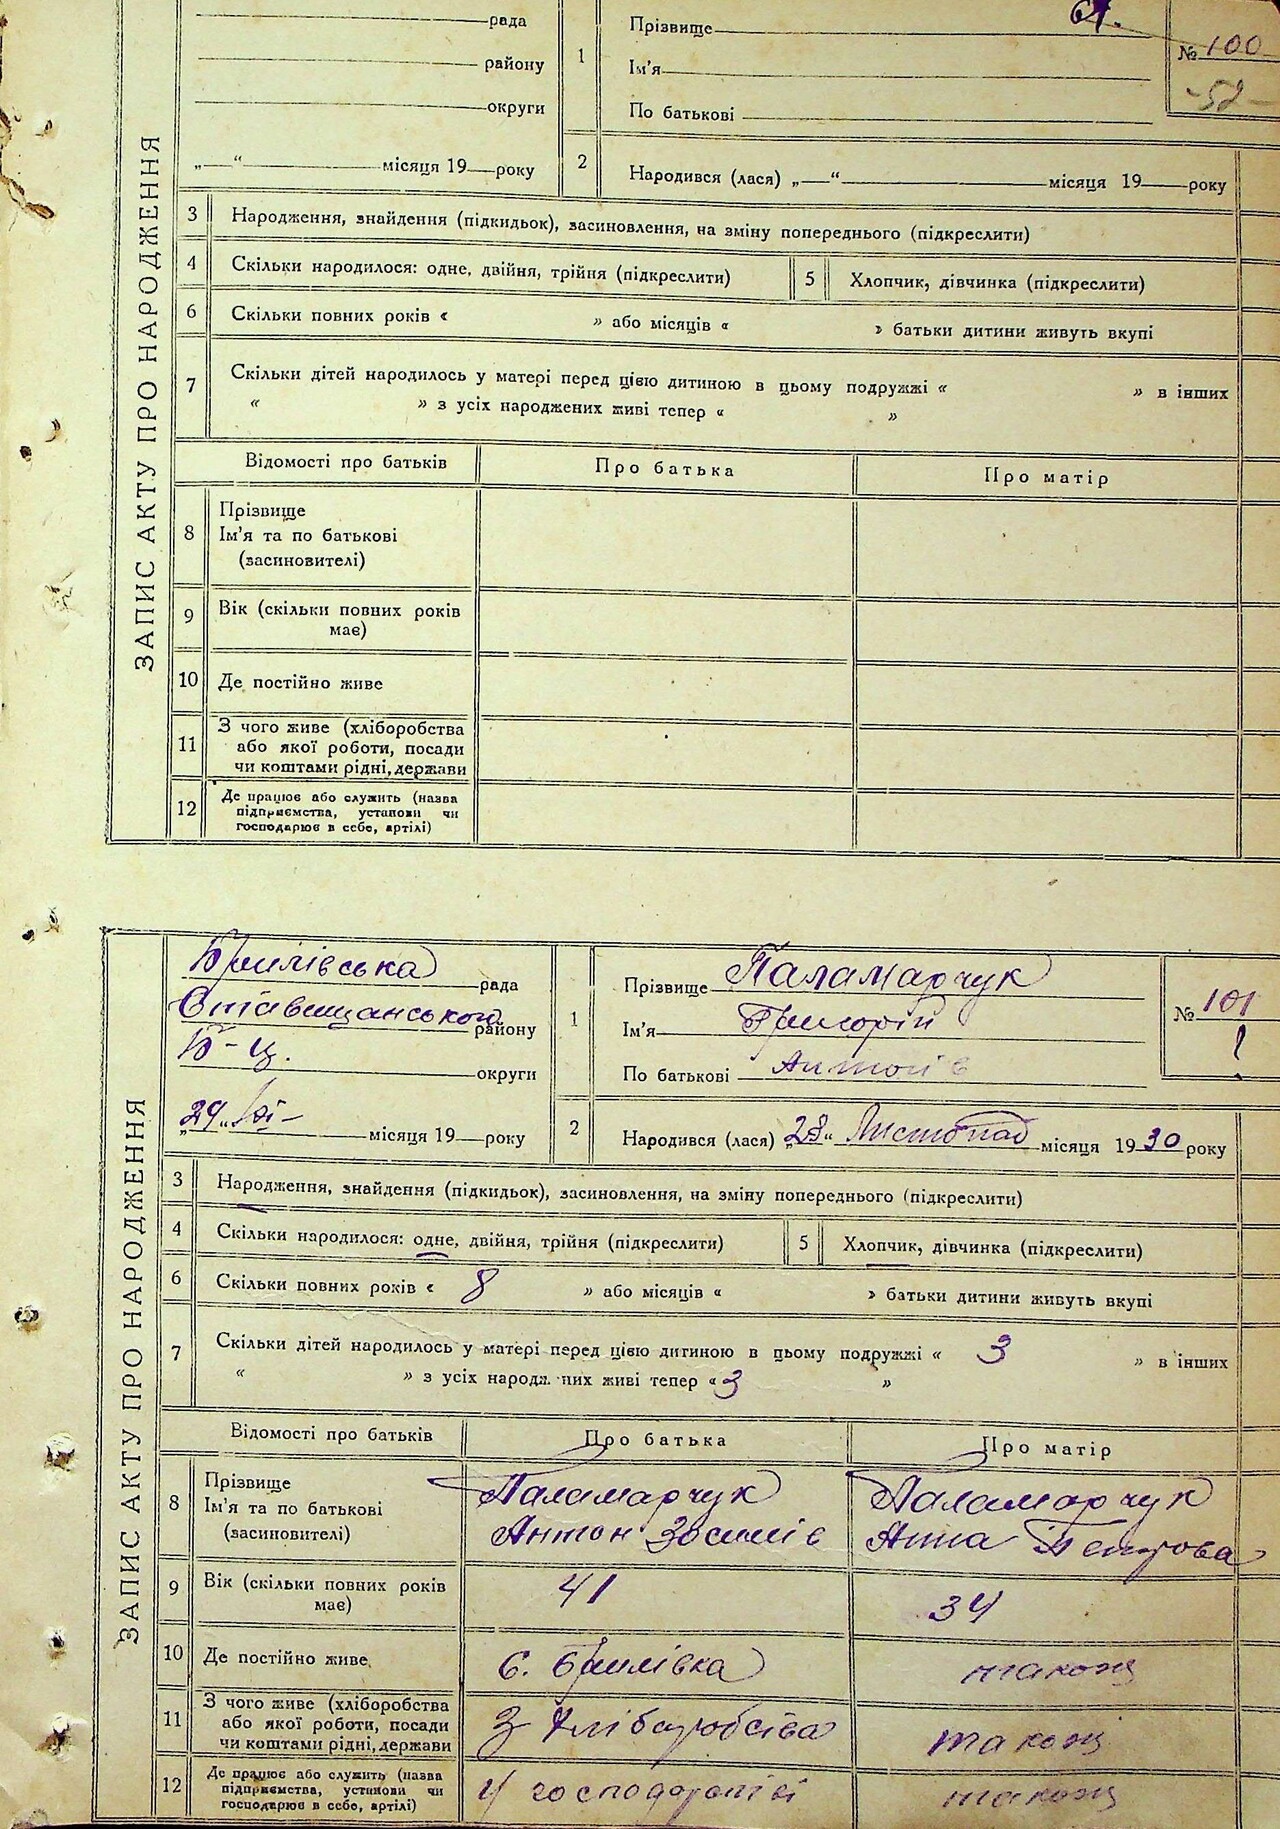 рада
району
округи
„ “ місяця 19 року
ЗАПИС АКТУ ПРО НАРОДЖЕННЯ
1
Прізвище
Ім'я
По батькові
№ 100
- 52 -
2 Народився (лася) „ “ місяця 19 року
3 Народження, знайдення (підкидьок), засиновлення, на зміну попереднього (підкреслити)
4 Скільки народилося: одне, двійня, трійня (підкреслити) 5 Хлопчик, дівчинка (підкреслити)
6 Скільки повних років « » або місяців « » батьки дитини живуть вкупі
7 Скільки дітей народилось у матері перед цією дитиною в цьому подружжі « » в інших
« » з усіх народжених живі тепер « »
Відомості про батьків Про батька Про матір
8 Прізвище
Ім'я та по батькові
(засиновителі)
9 Вік (скільки повних років
має)
10 Де постійно живе
11 З чого живе (хліборобства
або якої роботи, посади
чи коштами рідні, держави
12 Де працює або служить (назва
підприємства, установи чи
господарює в себе, артілі)
ЗАПИС АКТУ ПРО НАРОДЖЕННЯ
Брилівська рада
Ставищанського району
Б-Ц. округи
„29“ XI- місяця 19 року
1
Прізвище Паламарчук
Ім'я Григорій
По батькові Антонів
№ 101
2 Народився (лася) „28“ Листопад місяця 1930 року
3 Народження, знайдення (підкидьок), засиновлення, на зміну попереднього (підкреслити)
4 Скільки народилося: одне, двійня, трійня (підкреслити) 5 Хлопчик, дівчинка (підкреслити)
6 Скільки повних років « 8 » або місяців « » батьки дитини живуть вкупі
7 Скільки дітей народилось у матері перед цією дитиною в цьому подружжі « 3 » в інших
« » з усіх народжених живі тепер « 3 »
Відомості про батьків Про батька Про матір
8 Прізвище Паламарчук Паламарчук
Ім'я та по батькові Антон Зосимів Анна Петрова
(засиновителі)
9 Вік (скільки повних років 41 34
має)
10 Де постійно живе С. Брилівка також
11 З чого живе (хліборобства
або якої роботи, посади З хліборобства також
чи коштами рідні, держави
12 Де працює або служить (назва
підприємства, установи чи У господарстві також
господарює в себе, артілі)